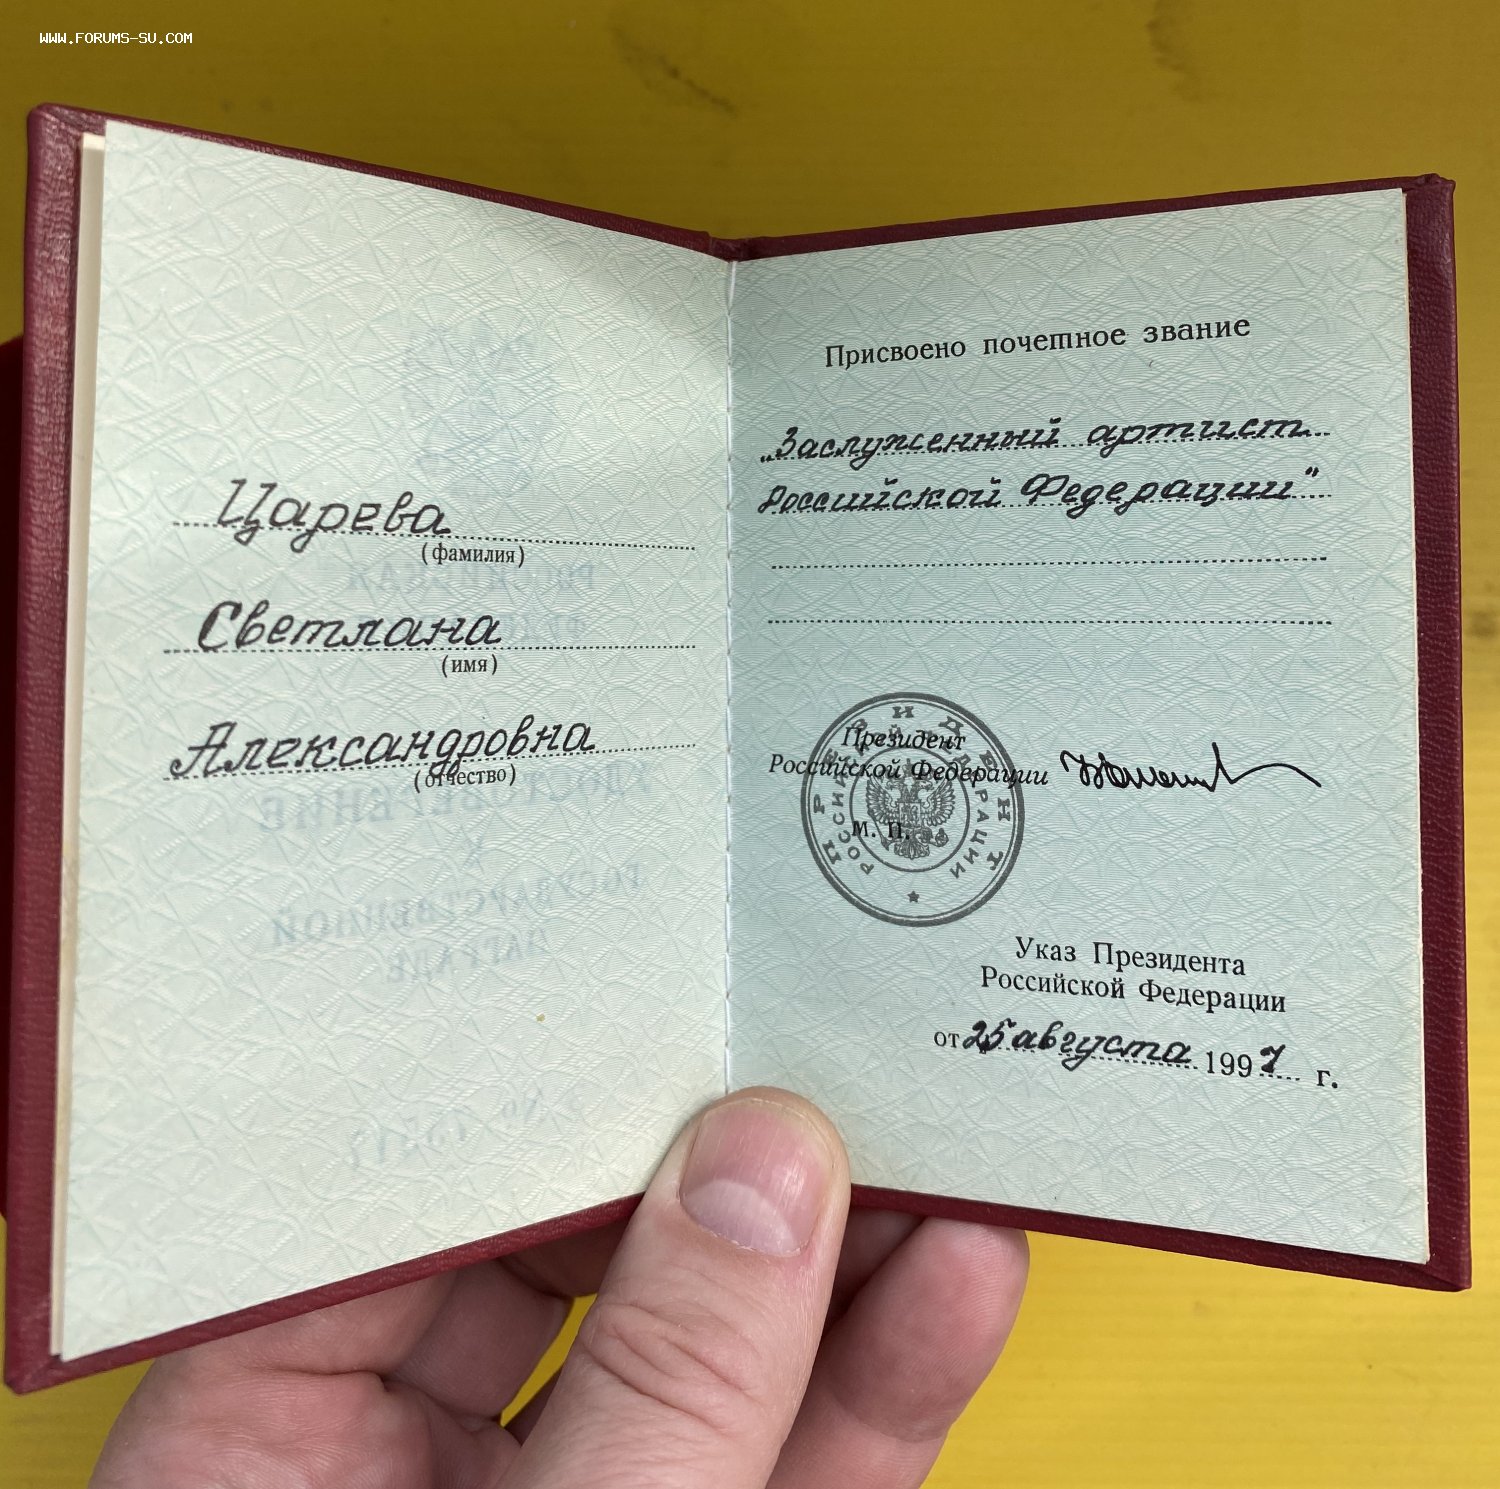 WWW.FORUMS-SU.COM
Царева
(фамилия)
Светлана
(имя)
Александровна
(отчество)
Присвоено почетное звание
„Заслуженный артист
Российской Федерации"
Президент
Российской Федерации
М. П.
ПРЕЗИДЕНТ
РОССИЙСКОЙ ФЕДЕРАЦИИ
Указ Президента
Российской Федерации
от 25 августа 1997 г.
РОССИЙСКАЯ
УДОСТОВЕРЕНИЕ
К
ГОСУДАРСТВЕННОЙ
НАГРАДЕ